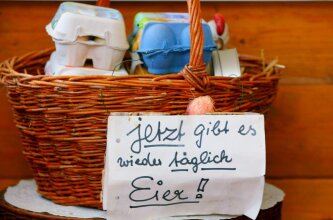 Jetzt gibt es
wieder täglich
Eier!